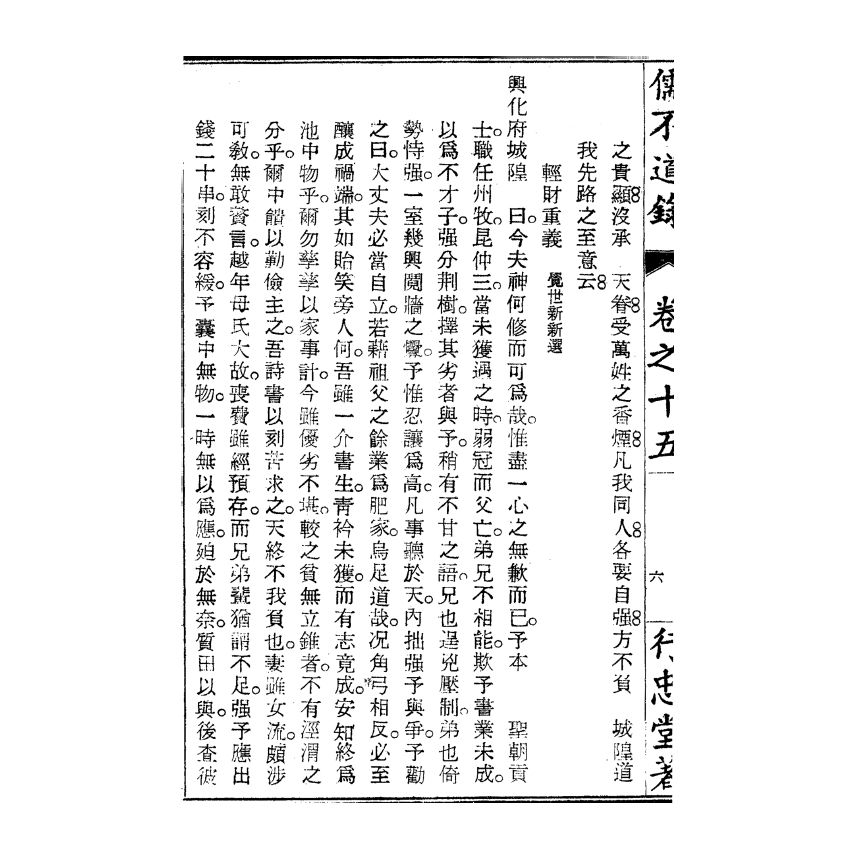 儒不道錄 卷之十五 六 行忠堂著
之貴顯。沒承 天眷。受萬姓之香煙。凡我同人。各要自强。方不負 城隍道
我先路之至意云。
輕財重義 覺世新新選
興化府城隍 曰。今夫神何修而可爲哉。惟盡一心之無歉而已。予本 聖朝貢
士。職任州牧。昆仲三。當未獲遇之時。弱冠而父亡。弟兄不相能。欺予書業未成。
以爲不才子。强分荆樹。擇其劣者與予。稍有不甘之語。兄也逞兇壓制。弟也倚
勢恃强。一室幾興鬩牆之釁。予惟忍讓爲高。凡事聽於天。內拙强予與爭。予勸
之曰。大丈夫必當自立。若藉祖父之餘業爲肥家。烏足道哉。况角弓相反。必至
釀成禍端。其如貽笑旁人何。吾雖一介書生。靑衿未獲。而有志竟成。安知終爲
池中物乎。爾勿孳孳以家事計。今雖優劣不堪。較之貧無立錐者。不有涇渭之
分乎。爾中饋以勤儉主之。吾詩書以刻苦求之。天終不我負也。妻雖女流。頗涉
可敎。無敢贅言。越年母氏大故。喪費雖經預存。而兄弟輩猶謂不足。强予應出
錢二十串。刻不容緩。予囊中無物。一時無以爲應。廹於無奈。質田以與。後查彼